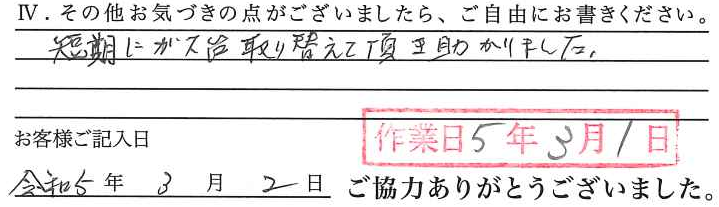 Ⅳ．その他お気づきの点がございましたら、ご自由にお書きください。
短期にガス台取り替えて頂き助かりました。
お客様ご記入日
作業日5年3月1日
令和5年3月2日 ご協力ありがとうございました。